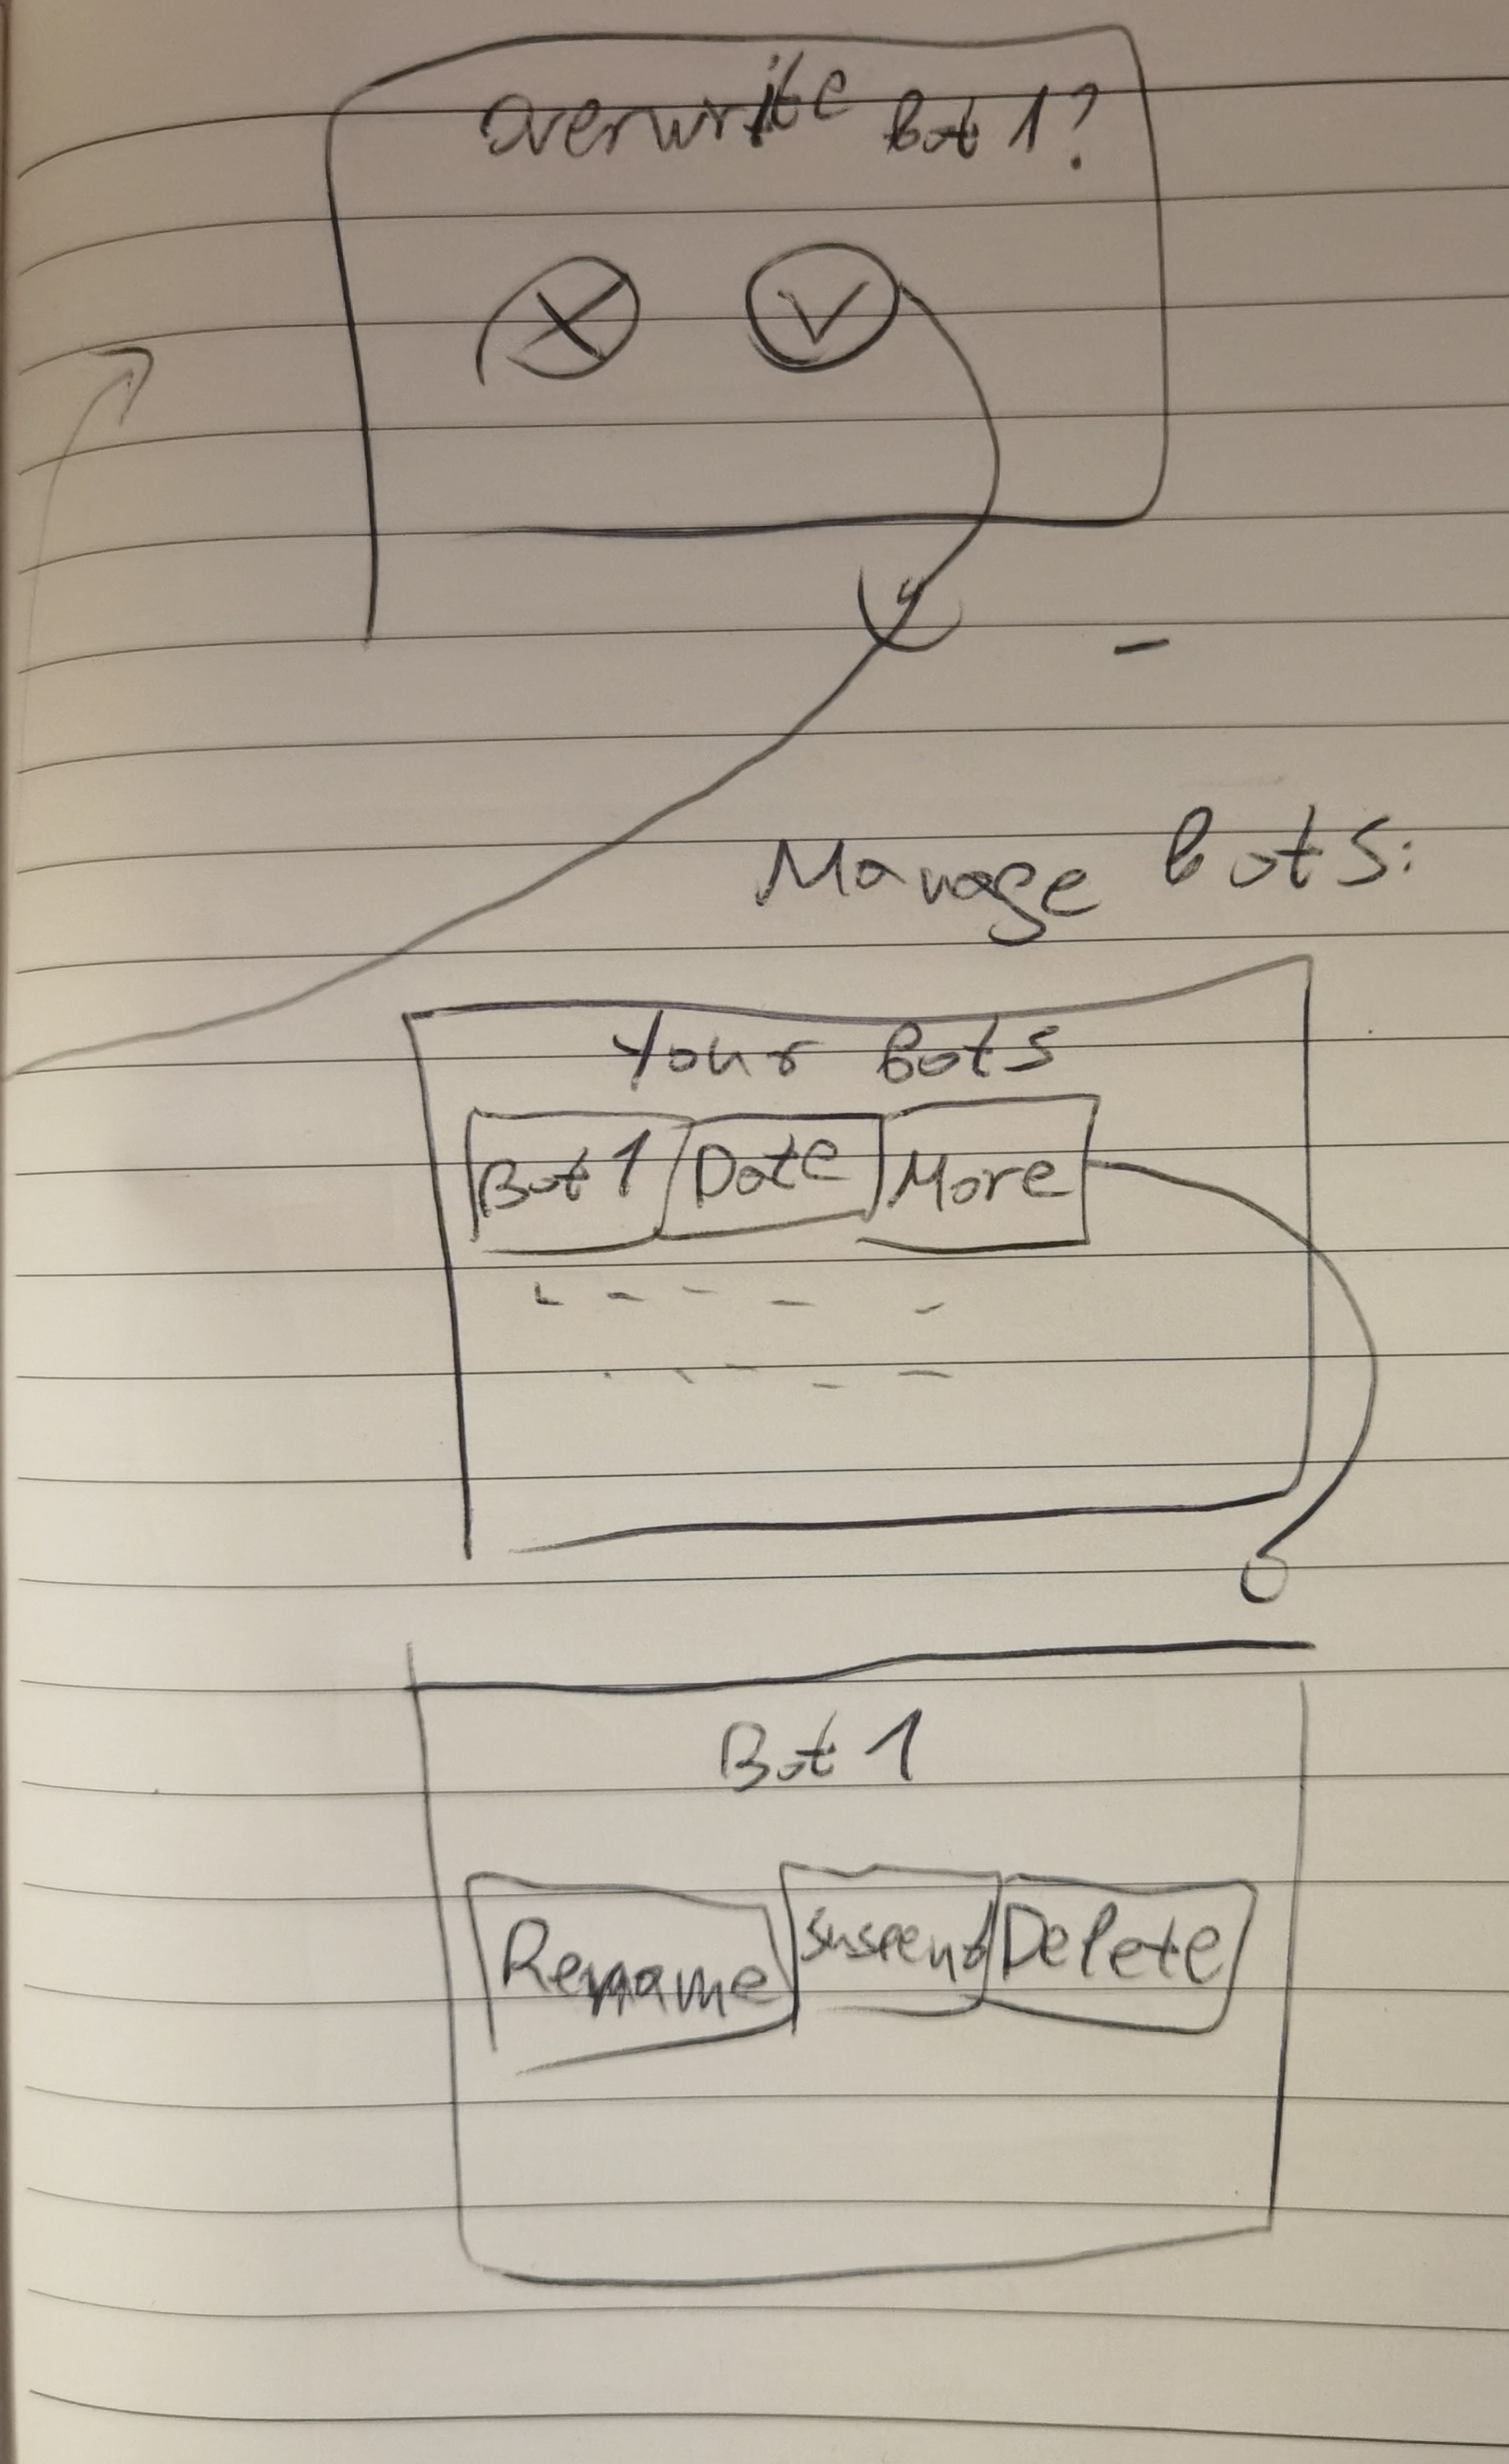 Overwrite Bot 1?
Manage Bots:
Your Bots
Bot 1 Date More
Bot 1
Rename Suspend Delete